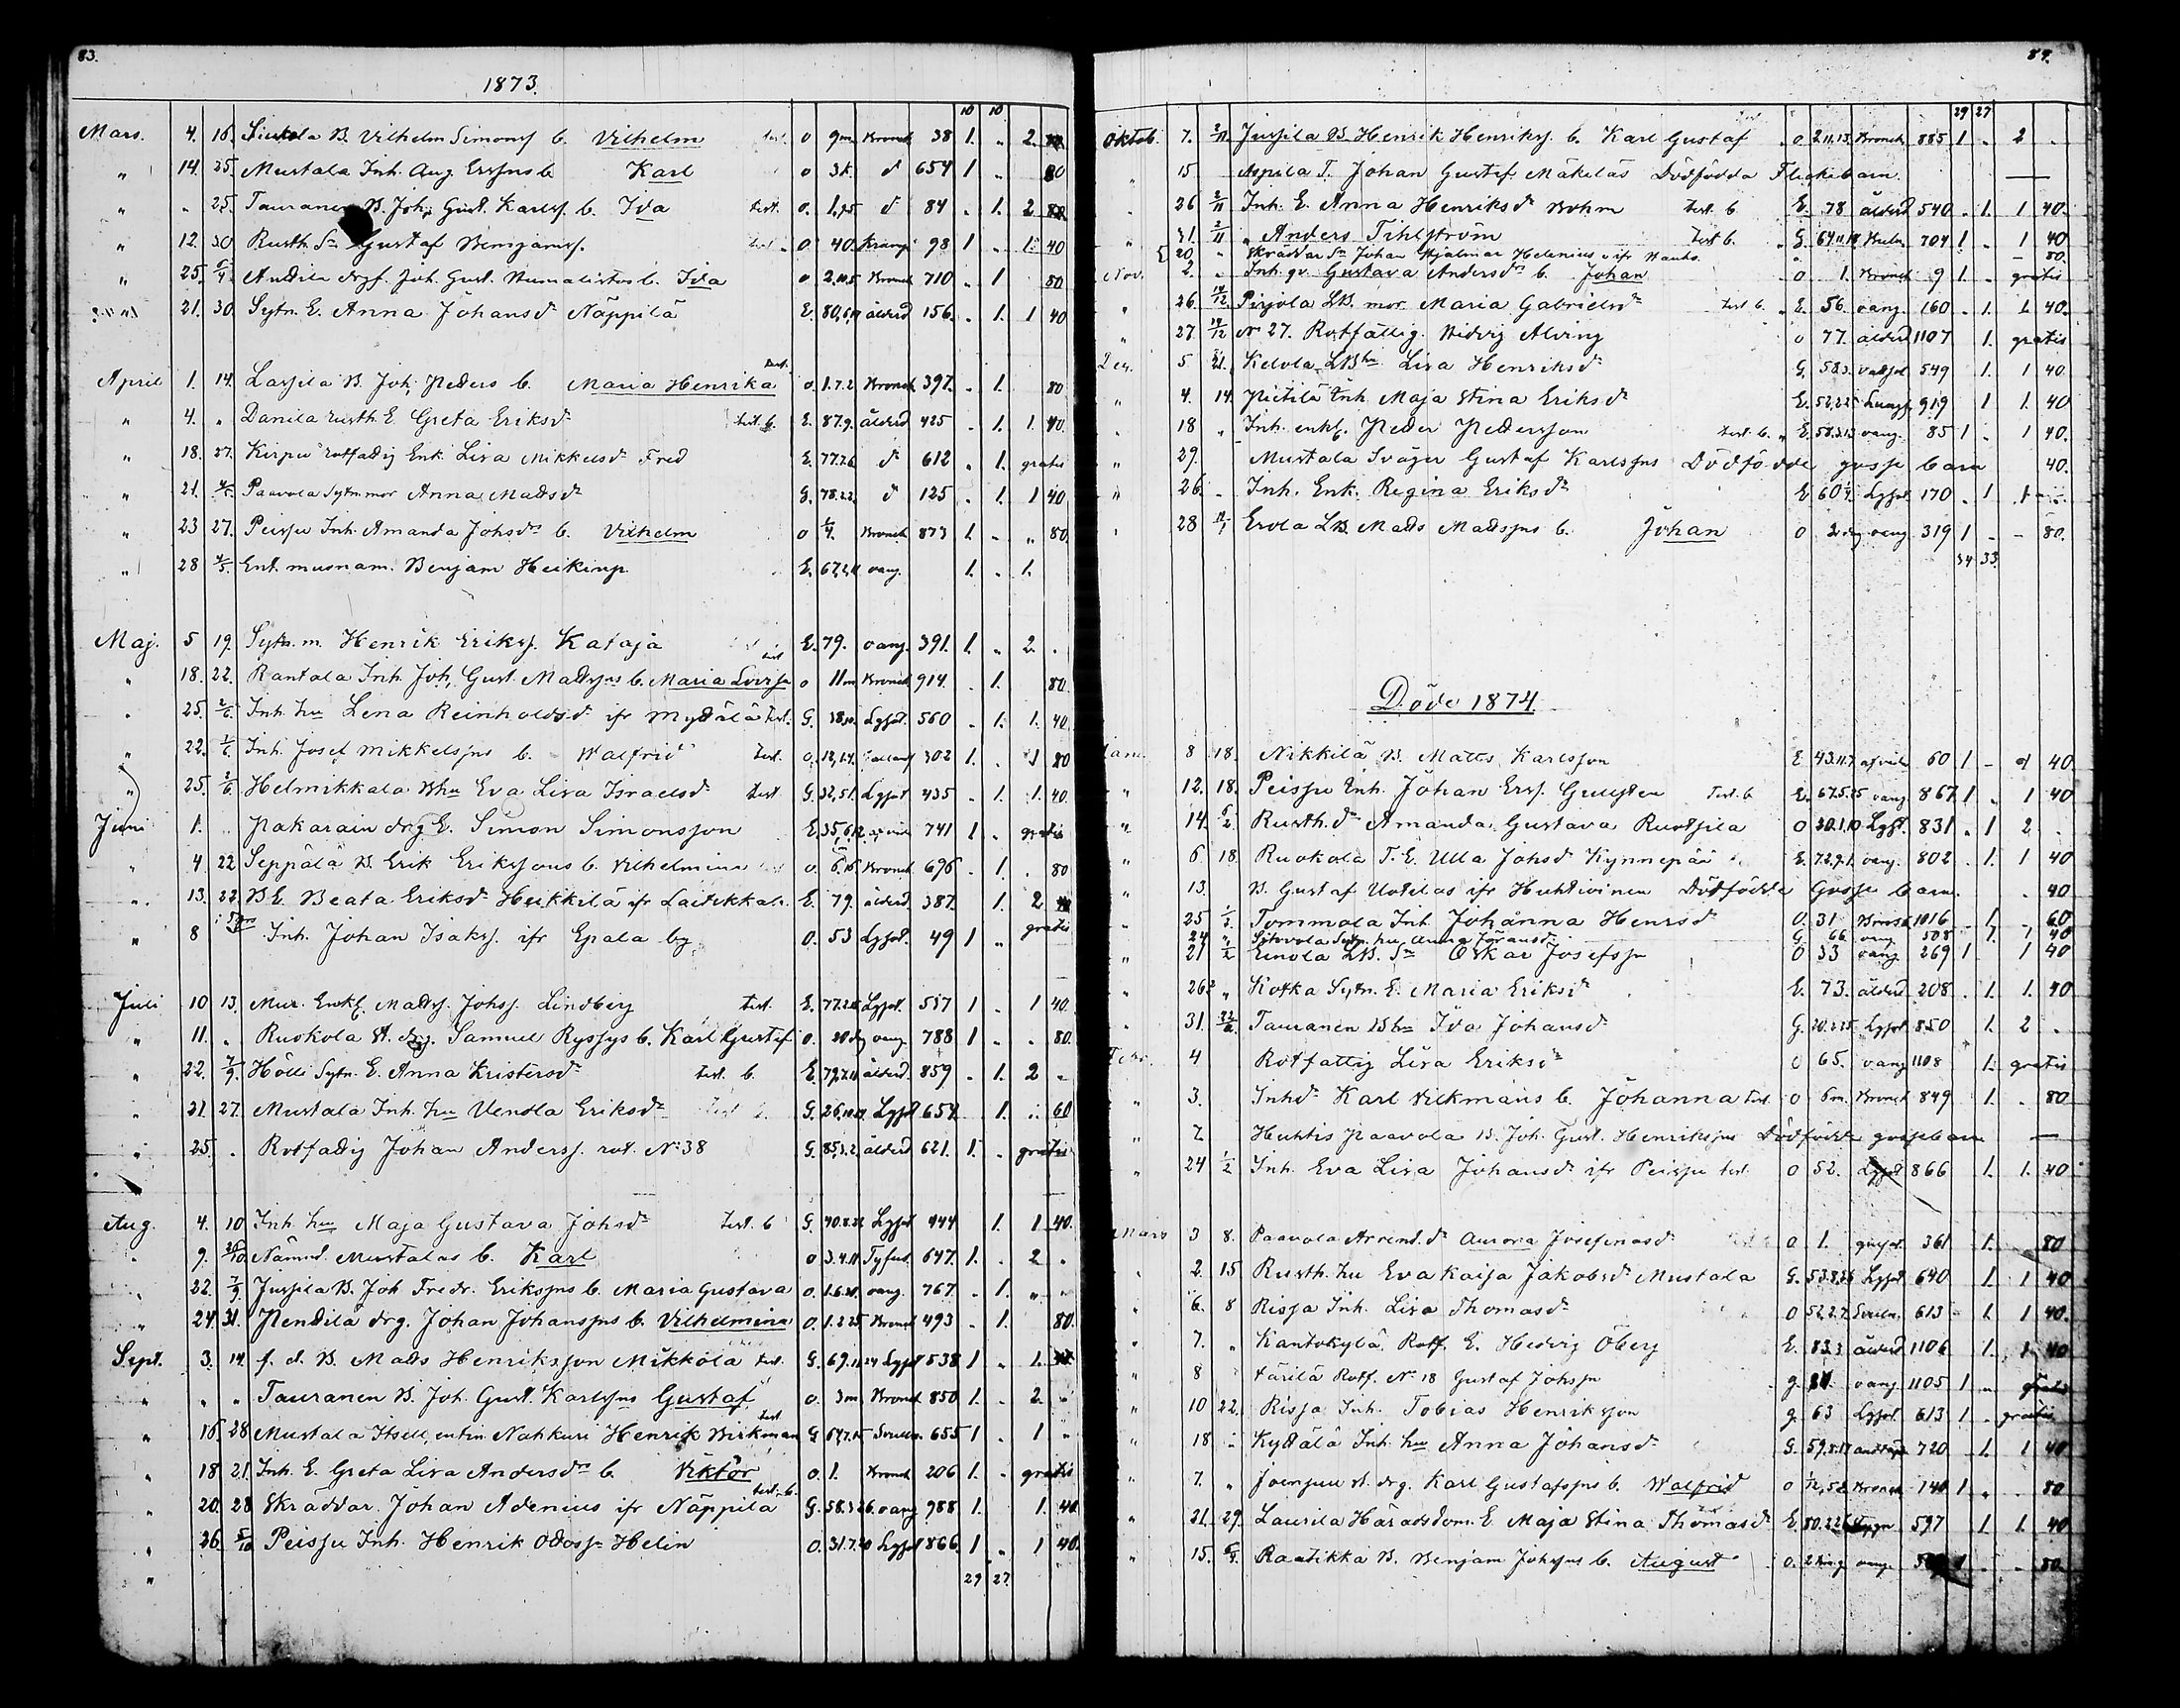 83.
1873.
10 10
Mars. 4. 16. B. Vilhelm Simonss b. Vilhelm test. o 9m Bronch 38 1. „ 2.
„ 14. 25. Mustala Inh. Aug. Erssns b. Karl o 3k. d 654 1 „ 80
„ „ 25. Tauranen B. Joh. Gust. Karlss. b. Ida test. o. 1,25 d 84 „ 1. 2
„ 12. 30 Rusth. Sn Gustaf Benjamss. test. o. 40. Kramp 98 1 „ 1. 40
„ 25. 5/4. Anttila drg. Joh. Gust. b. Ida o 2.10.5 Bronch 710 „ 1 80
21. 30. Sytn. E. Anna Johansdr Näppilä E. 80,6,19 ålderd 156. „ 1. 1 40
April 1. 14. Lassila B. Joh. Peders b. Maria Henrika test. o. 1.7.2 Bronch 397. „ 1. 80
„ 4. „ Danila rusth. E. Greta Eriksdr test. b. E. 87.9. ålderd 425 „ 1. 1. 40.
„ 18. 27. Kirpu rotfattig Enk. Lisa Mikkelsdr Fred E. 77.7.6 d 612 „ 1. gratis
„ 21. 4/5. Paavola Sytn. mor Anna Matsdr G. 78.2.2. d 125 „ 1. 1 40
„ 23 27. Peippu Inh. Amanda Johsdrs b. Vilhelm o 1/4. Bronch 873 1. „ „ 80.
„ 28 4/5. Enk. Benjam Heikinp. E. 67,2,11 oang. 1. „ 1.
Maj. 5 19. Sytn. m. Henrik Erikss. Kataja E. 79. oang. 391. 1. „ 2. „
„ 18. 22. Rantala Inh. Joh. Gust. Matssns b. Maria Lovisa test o 11m Bronch 914. „ 1. 80.
„ 25. 2/6. Inh. hu Lena Reinholdsdr ifr Myttälä test. G. 38,10. Lgsot. 560 „ 1. 1. 40.
„ 22. 1/6. Inh. Josef Mikkelssns b. Walfrid test. o. 12,1.4. 302 1. „ 80
„ 25. 2/6. Helmikkala Bhu Eva Lisa Israelsdr test G. 32,5,1. Lgsot 435 „ 1. 1. 40.
Juni 1. „ Pakarain drg E. Simon Simonsson E. 35,6,12. 741 1 „ gratis
„ 4 22 Seppälä B. Erik Erikssons b. Vilhelmina o. 6.15. Bronch 696 „ 1. „ 80
„ 13. 22. BE. Beata Eriksdr Heikkilä ifr Laitikkala. E. 79. ålderd. 387. 1. 2
„ 8 Inh. Johan Isakss. ifr Epala by. o. 53 Lgsot. 49 1 „ gratis
Juli 10 13. Mur. Enkl. Matss. Johss. Lindberg test. E. 77.2.25 Lgsot. 557 1 „ 1 40.
„ 11. „ Ruokola St. drg. Samuel Ryssys b. Karl Gustaf o. 20dg oang. 788 1 „ „ 80.
„ 22. 7/9. Hölli Sytn. E. Anna Kristersdr test. b. E. 79.7.11 ålderd. 859 „ 1. 2 „
„ 21. 27. Mustala Inh. hu Vendla Eriksdr G. 26,10,19 Lgsot 654 1. „ 60
„ 25. „ Rotfattig Johan Anderss. rot. No 38 G. 85,3.2. ålderd 621. 1. „ gratis
Aug. 4. 10. Inh. hu Maja Gustava Johsdr test. b G. 40.8.22 Lgsot 444 1. 1. 40.
„ 9. Nämnd. Mustalas b. Karl o 3.4.11 Tyfus 647. 1. „ 2 „
„ 22. 7/9. Jussila B. Joh. Fredr. Erikssns b. Maria Gustava o. 1.6.21. oang. 767. „ 1. „ „
„ 24. 31. Penttilä drg. Johan Johanssns b. Vilhelmina o. 1.2.25 Bronch 493 „ 1. 80.
Sept. 3. 14. f. d. B. Mats Henriksson Mikkola test. G. 69.11.24 Lgsot 538 1 „ 1.
„ „ „ Tauranen B. Joh. Gust. Karlssns Gustaf o. 3m Bronch 850 1. „ 2. „
„ 16. 28 Mustala Itsell. Nahkuri Henrik Birkman test G 64,7.15 655 1 „ 1 „
„ 18 21. Inh. E. Greta Lisa Andersdrs b. Viktor o. 1. Bronch 206 1. „ gratis
„ 20. 28 Skräddar. Johan Adenius ifr Näppilä test. b. G. 58.3.26. oang 988 1. 1. 40.
„ 26. 5/10 Peippu Inh. Henrik Helin o. 31.7.20 Lgsot 866. 1 „ 1 40.
„ 29 27.
84.
29 27
Oktob. 7. 2/11. Jussila B. Henrik Henrikss. b. Karl Gustaf o 2.11.13. Bronch. 885 1 „ 2 „
„ 15 Aspila T. Johan Gustaf Mäkeläs Dödfödda Flickebarn. —
„ 26 2/11 Inh. E. Anna Henriksdr Bohm test. b. E. 78 ålderd 540 „ 1. 1 40.
„ 31 2/11 „ Anders Tihlström test b. G. 64.11.19 704 1 „ 1 40
20. „ Skräddar Sn Johan Hjalmar Helenius ifr — 80.
Nov. 2. „ Inh. qv. Gustava Andersdrs b. Johan o 1. Bronch 9 1. „ gratis
„ 26. 14/12. Pirjola LB. mor. Maria Gabrielsdr test b. E. 56. oang. 160 „ 1. 1 40.
„ 27. 14/12 No 27. Rotfattig. Hedvig Alving o 77. ålderd 1107 1. gratis
Dec. 5 21. Ketola LBhu Lisa Henriksdr G. 58.3. vattsot 549 1. 1 40.
„ 4. 14. Pietilä Inh. Maja Stina Eriksdr E. 52.2.25 919 1 1. 40
„ 18 „ Inh. enkl. Peder Pedersson test. b. E. 58.3.13 oang. 85 1 „ 1 40.
„ 29. Mustala Svåger Gustaf Karlssns Dödfödda gosse barn 40.
„ 26. „ Inh. Enk. Regina Eriksdr E 60 Lgsot. 170 „ 1 1
„ 28 Erola LB. Mads Madssns b. Johan o 2dg oang 319 1 - - 80.
34 33.
Döde 1874.
Jan. 8 18. Nikkilä B. Matts Karlsson E. 43.11.7 60 1 - 40
„ 12. 18. Peippu Inh. Johan Erss. test. b E. 67.5.25 oang 867 1 „ 1 40
„ 14. 6/2 Rusth. dr Amanda Gustava Ruotsila o 20.1.10 Lgsot. 831 „ 1 2 „
„ 6 18. Ruokola T. E. Ulla Johsdr Kynnepää E. 72.9.1. oang. 802 „ 1. 1 40
„ 13. B. Gustaf Uotilas ifr Huhtioinen Dödfödda Gosse barn. „ 40
„ 25 Tommola Inh. Johanna Henrsdr o. 31 1016 1 „ 60
24 „ Sytn. hu Anna Johansdr G. 66 oang 508 1. 1 40
„ 21 Einola LB. Sn Oskar Josefssn o 33 oang. 269 1 1 40
„ 26 „ Kotka Sytn. E. Maria Eriksdr E. 73. ålderd 208 „ 1. 1. 40
„ 31. Tauranen Bhu Ida Johansdr G. 20.2.25 Lgsot 850 1. 2 „
Febr. 4 Rotfattig Lisa Eriksdr o 65. oang 1108 1. gratis
„ 3. Inhs Karl Vilkmans b. Johanna test o 6m. Bronch 849 1. „ 80
„ 7 Huhtis Paavola B. Joh. Gust. Henrikssns Dödfödda gossebarn —
„ 24 1/2 Inh. Eva Lisa Johansdr ifr Peippu test. o 52. Lgsot 866 1. 1. 40
Mars 3 8. Paavola Arrend. dr Aurora Josefinasdr o 1. 361 1. 80
„ 2. 15 Rusth. hu Eva Kaisa Jakobsdr Mustala G. 53.8.26 Lgsot 640 1. 1 40
„ 6. 8 Rissa Inh. Lisa Thomasdr o 52.2.7. 613 1. 1 40.
„ 7. „ Kantokylä Rotf. E. Hedvig Öberg E. 83.3 ålderd 1106 1. 1. 40
„ 8 Rotf. No 18 Gustaf Johssn g. oang 1105 1 „ gratis
„ 10 22. Rissa Inh. Tobias Henriksson g. 63 Lgsot. 613 1 „ gratis
„ 18 „ Kyttälä Inh. hu Anna Johansdr G. 59.8.17 720 1. 1 40
„ 7. „ Joenpuu st. drg. Karl Gustafssns b. Walfrid o Bronch 140 1 „ „ 80
„ 21. 29. Laurila Häradsdom. E. Maja Stina Thomasdr E. 80.2.26 597 1. 1. 40
„ 15. Raatikka B. Benjam Johssns b. August o. oang. „ 80.